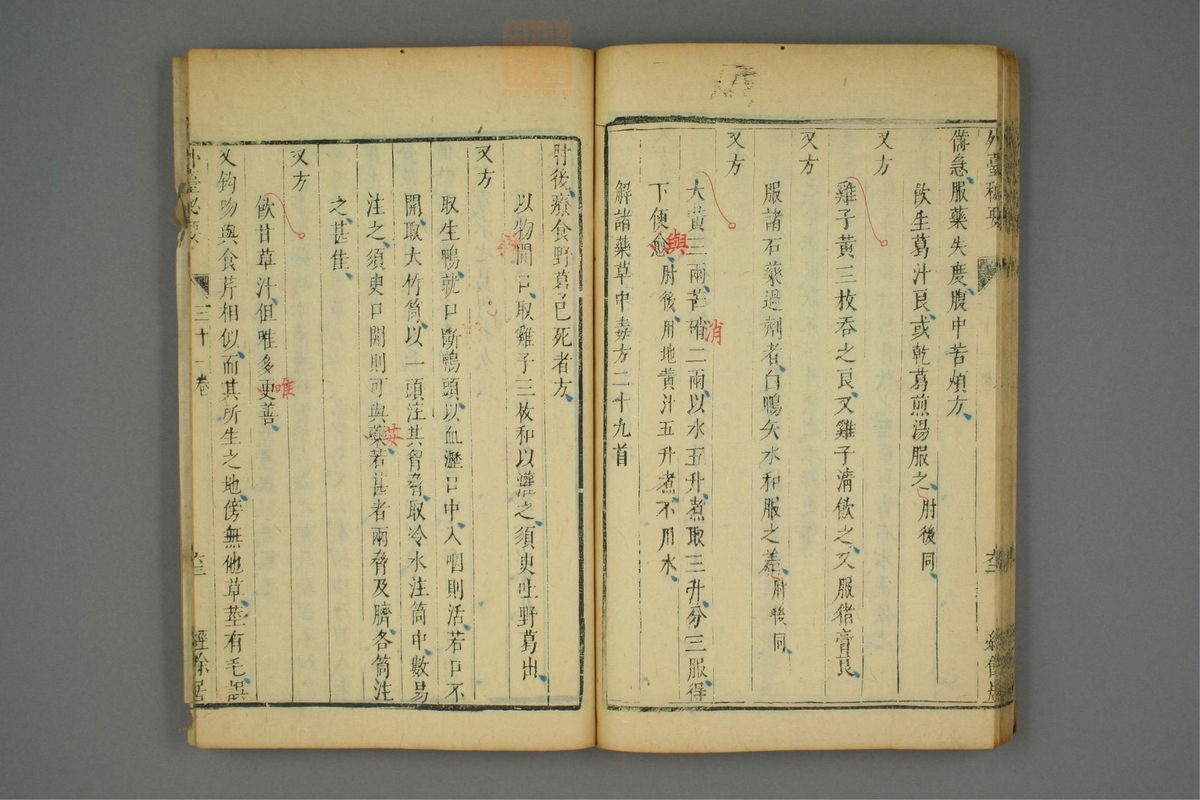 外臺秘要
備急服藥失度腹中苦煩方
飲生葛汁良或乾葛煎湯服之肘後同
又方
雞子黃三枚吞之良又雞子清飲之又服猪膏良
又方
服諸石藥過劑者白鴨矢水和服之差肘後同
又方
大黃三兩芒硝二兩以水五升煮取三升分三服得
消
下便愈肘後用地黄汁五升煮不用水
與
解諸藥草中毒方二十九首
肘後療食野葛已死者方
以物開口取雞子三枚和以灌之須臾吐野葛出
又方
取生鴨就口斷鴨頭以血瀝口中入咽則活若口不
開取大竹筒以一頭注其胷脅取冷水注筒中數易
注之須臾口開則可與藥若甚者兩脅及臍各筒注
之甚佳
又方
飲甘草汁但唯多更善
唯
又鈎吻與食芹相似而其所生之地傍無他草莖有毛誤
外臺秘要
三十一卷
經餘居